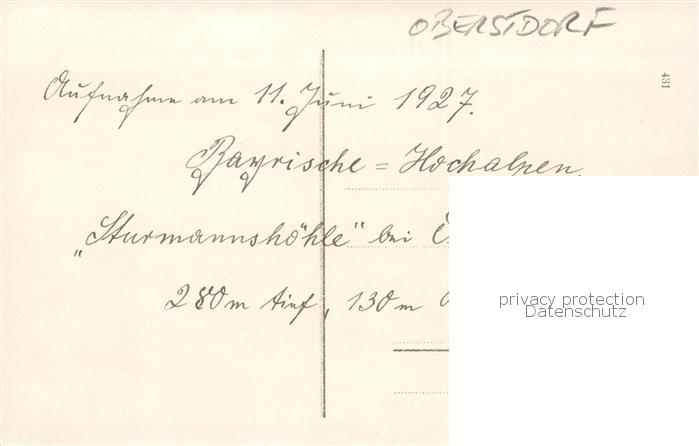 OBERSTDORF
431
Aufnahme am 11. Juni 1927.
Bayrische = Hochalpen.
„Sturmannshöhle" bei
280m tief, 130m
privacy protection
Datenschutz